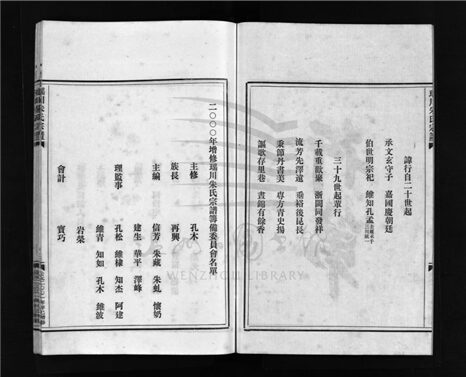 瑞川朱氏宗譜
諱行自二十世起
承文玄守子 嘉國慶朝廷
伯世明宗祀 維知孔孟
三十九世起輩行
千載重歡聚 浙閩同發祥
流芳先澤遠 垂裕後昆長
秉節丹書美 專方青史揚
謳歌存里巷 晝錦有餘香
二〇〇〇年增修瑞川朱氏宗譜籌備委員會名單
主修 孔木
族長 再興
主編 信芳 朱藏 朱虬 懷奶
建生 華平 澤峰
理監事 孔松 維棣 知杰 阿建
維青 知如 孔木 維波
會計 岩榮
寶巧
WENZHOU LIBRARY